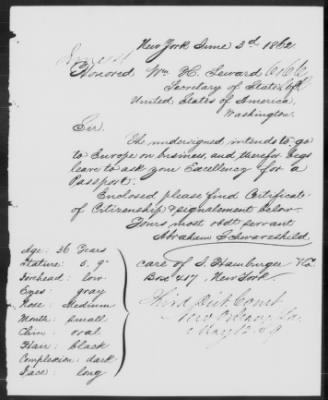 New York June 3d 1862
Honored Wm H. Seward
Secretary of State of
United States of America,
Washington.
Sir.
The undersigned intends to go
to Europe on business, and therefor begs
leave to ask your Excellency for a
Passport.
Enclosed please find Certificate
of Citizenship & signalement below.
Yours most obdt servant
Abraham Schwarzschild
care of S. Hamburger
Box 417, New York.
Age: 36 Years
Stature: 5, 9"
Forehead: low
Eyes: gray
Nose: Medium
Mouth: small
Chin: oval
Hair: black
Complexion: dark
Face: long
Third Dist. Court
New Orleans, La.